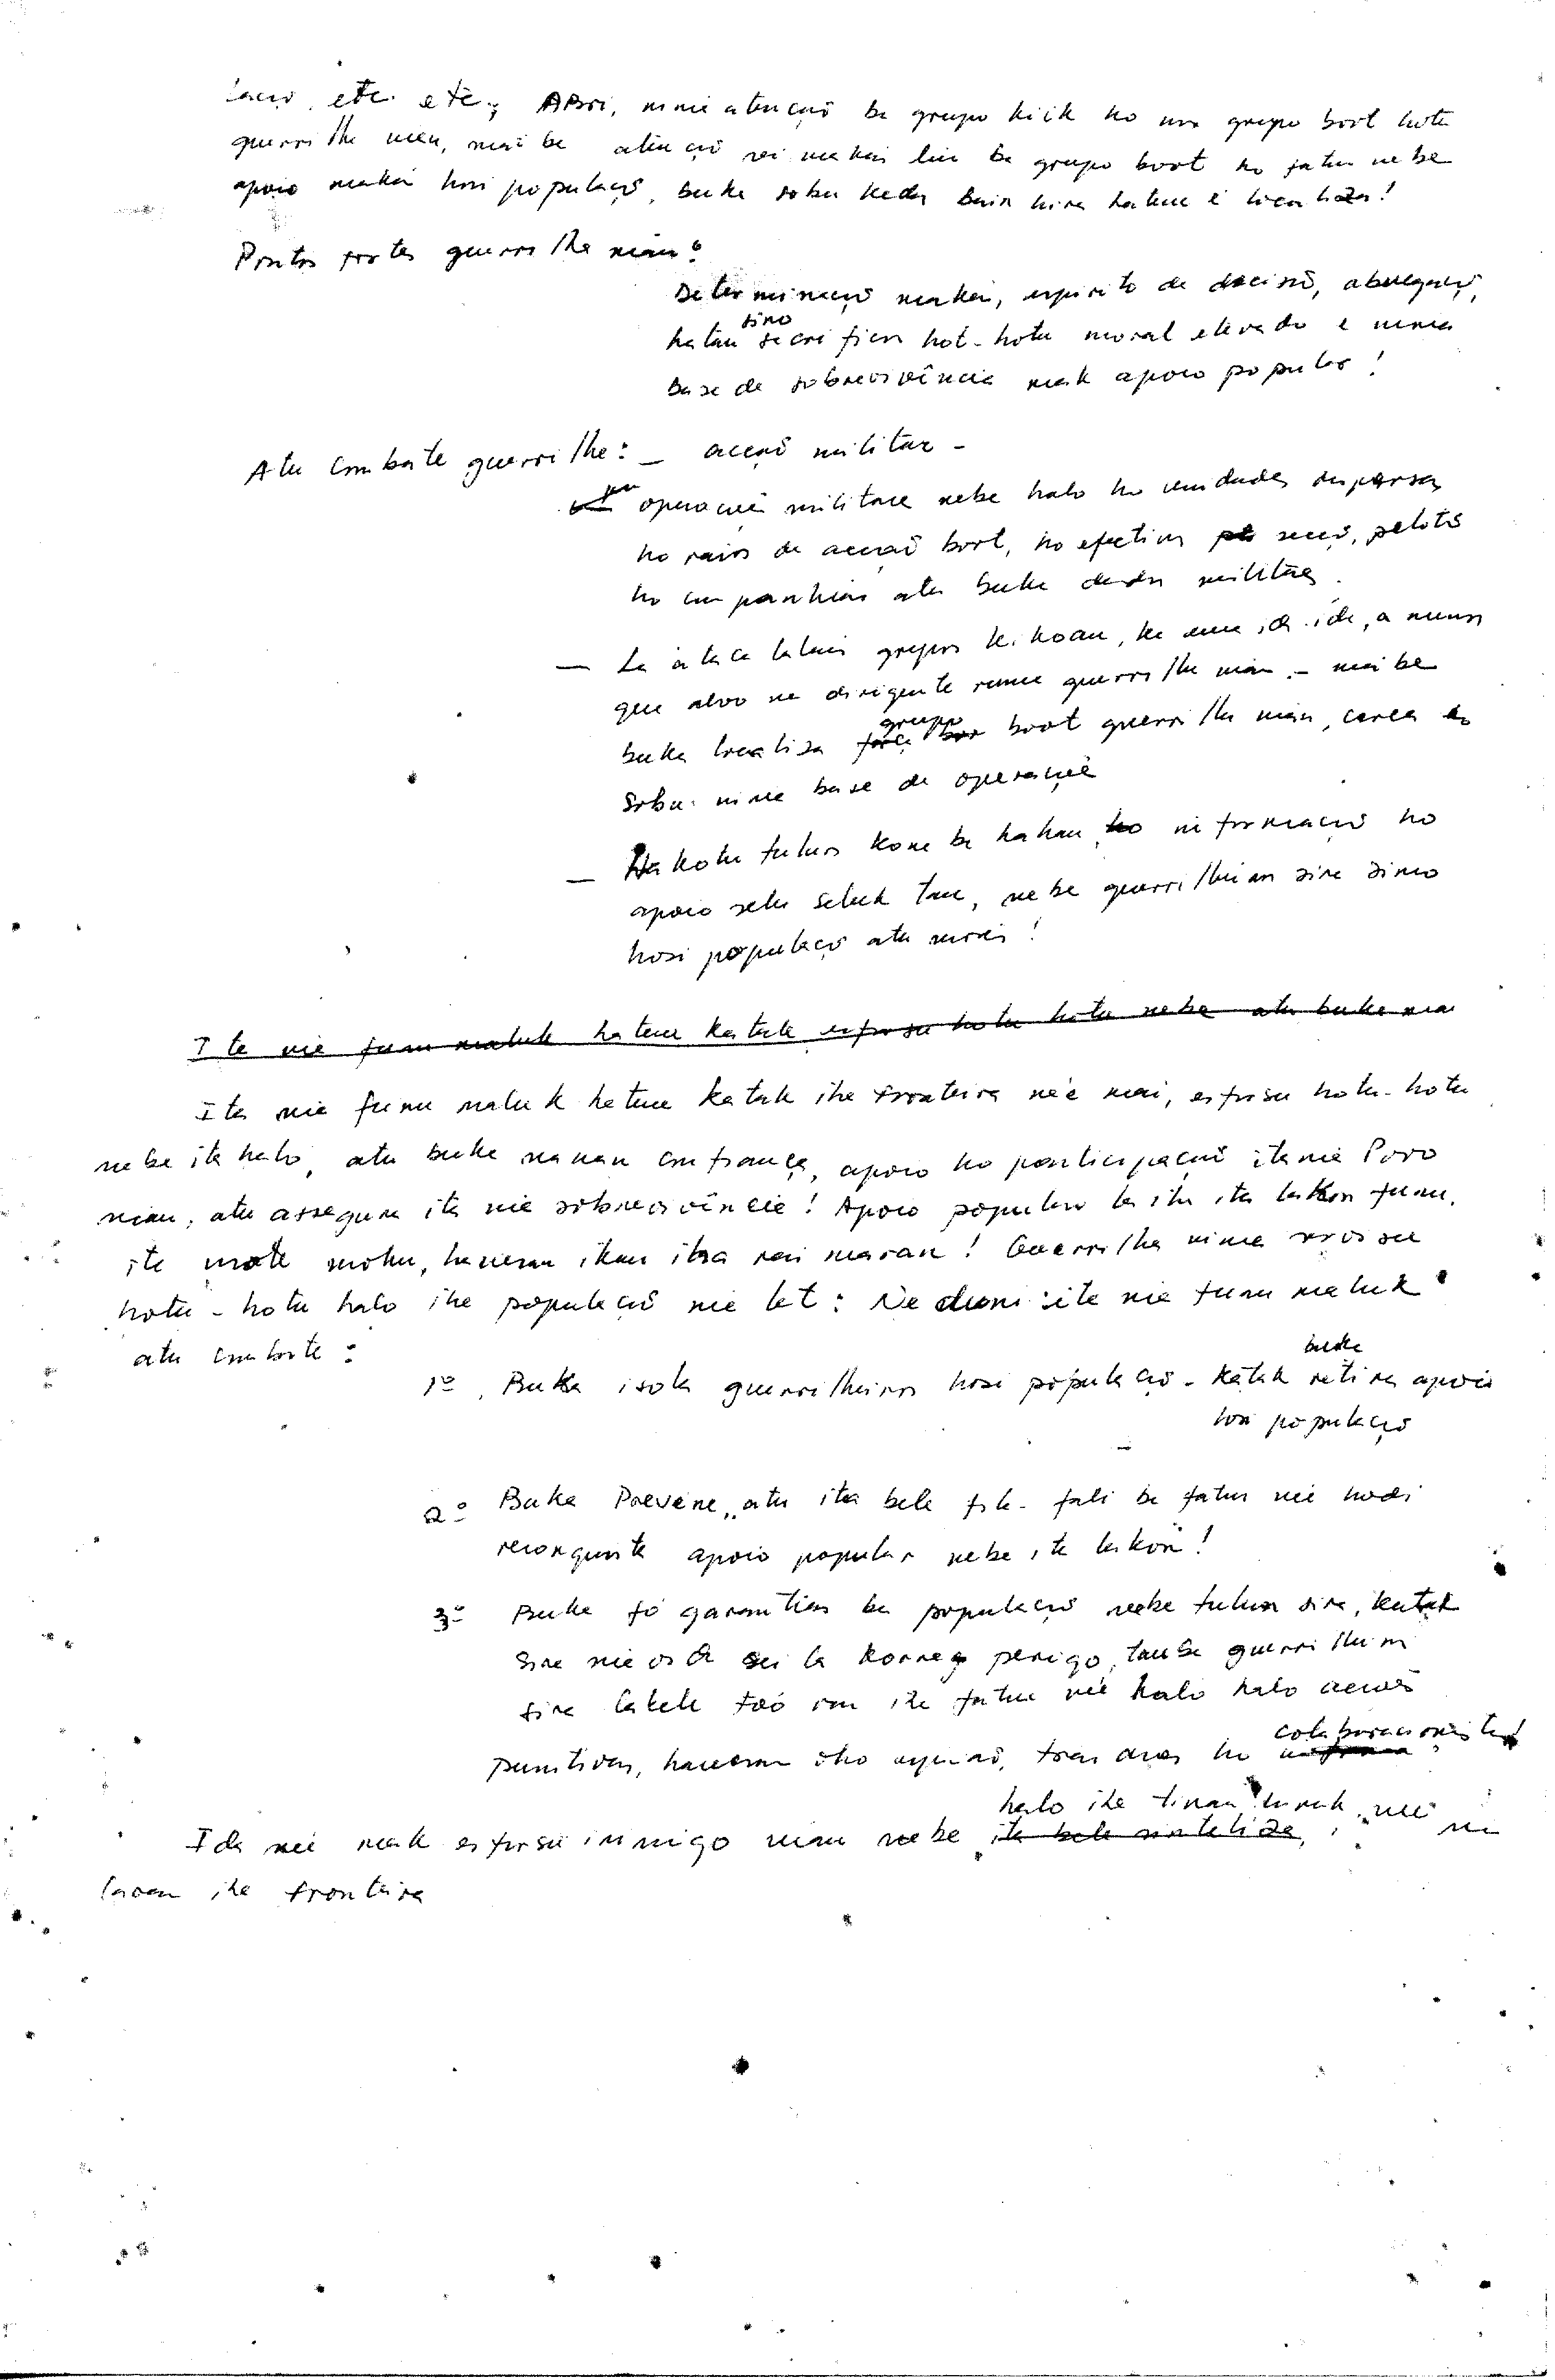 lació, etc. etc; ABRI, ninia atenção ba grupo kiik ho no grupo boot hotu
guerrilha nian, mai be atenção sei makas liu ba grupo boot ho fatin nebe
apoio makas hosi população, buka sobu kedas bain hira hatene i localiza!
Pontos fortes guerrilha nian:
Determinação makas, espirito de decisão, abnegação,
simo
hatau sacrificio hot-hotu moral elevado e ninia
base de sobrevivência mak apoio popular!
Atu combate guerrilha: - acção militar -
operação militar nebe halo ho unidades dispersas
ho raios de acção boot, ho efectivos secção, pelotão
ho companhias atu buka dadus militares.
- La ataca lalais grupos ki'koan, ka ema ida-ida, a menos
que alvo ne dirigente ruma guerrilha nian - mai be
grupo
buka localiza força boot guerrilha nian, cerca
sobu ninia base de operação
- Ha kotu tulun kona ba hahan, ho informação ho
apoio seluk seluk tan, nebe guerrilheiros sira simo
hosi população atu moris!
Ita nia funu maluk hatene katak esforsu hotu hotu nebe atu buka
Ita nia funu maluk hatene katak iha fronteira ne'e mai, esforsu hotu-hotu
nebe ita halo, atu buka manan confiança, apoio ho participação ita nia Povo
nian, atu assegura ita nia sobrevivência! Apoio popular la iha ita lakon funu,
ita mate mohu, hanesan ikan iha rai maran! Guerrilha ninia
hotu-hotu halo iha população nia let: Ne duni ita nia funu maluk
atu combate:
buka
1º. Buka isola guerrilheiros hosi população - katak retira apoio
hosi população
2º Buka Prevene, atu ita bele fila-fali ba fatin ne'e hodi
reconquista apoio popular nebe ita lakon!
3º Buka fó garantias ba população nebe tulun sira, katak
sira nia oi sei la korre perigo, tanba guerrilheiros
sira labele to'o iha fatin ne'e halo halo acções
punitivas, hanesan oho espião, traidores ho
colaboracionistas
halo iha tinan hirak ne'e
Ida ne'e mak esforsu inimigo nian nebe ita bele sintetiza,
laran iha fronteira